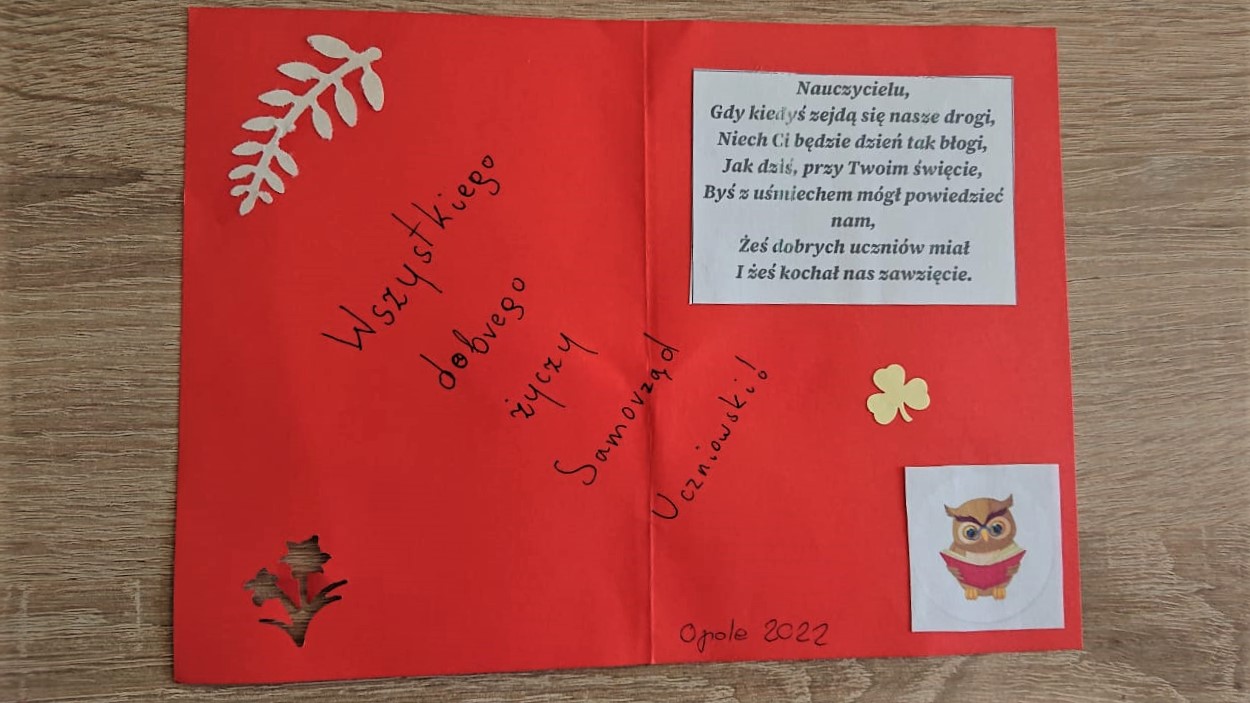 Wszystkiego
dobrego
życzy
Samorząd
Uczniowski!
Nauczycielu,
Gdy kiedyś zejdą się nasze drogi,
Niech Ci będzie dzień tak błogi,
Jak dziś, przy Twoim święcie,
Byś z uśmiechem mógł powiedzieć
nam,
Żeś dobrych uczniów miał
I żeś kochał nas zawzięcie.
Opole 2022